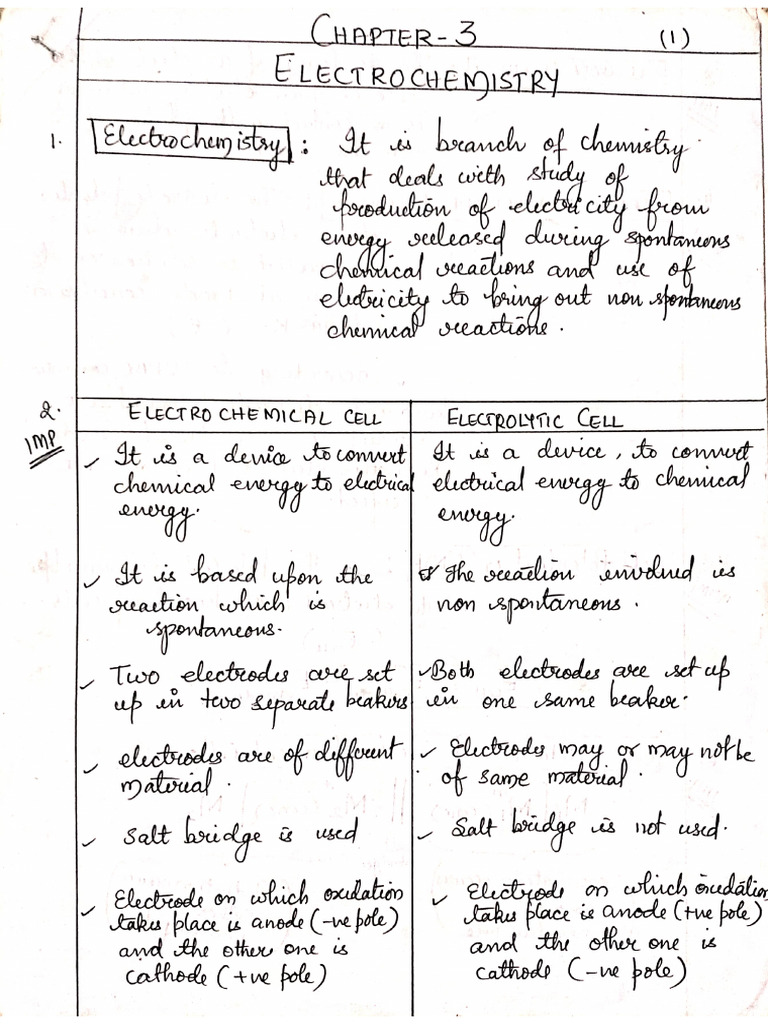 CHAPTER-3 (1)
ELECTROCHEMISTRY
1. Electrochemistry : It is branch of chemistry
that deals with study of
production of electricity from
energy released during spontaneous
chemical reactions and use of
electricity to bring out non spontaneous
chemical reactions.
2.
IMP
ELECTRO CHEMICAL CELL
✓ It is a device to convert
chemical energy to electrical
energy.
✓ It is based upon the
reaction which is
spontaneous.
✓ Two electrodes are set
up in two separate beakers
✓ electrodes are of different
material.
✓ Salt bridge is used
✓ Electrode on which oxidation
takes place is anode (-ve pole)
and the other one is
cathode (+ve pole)
ELECTROLYTIC CELL
It is a device, to convert
electrical energy to chemical
energy.
The reaction involved is
non spontaneous.
✓ Both electrodes are set up
in one same beaker.
✓ Electrodes may or may not be
of same material.
✓ Salt bridge is not used.
✓ Electrode on which oxidation
takes place is anode (+ve pole)
and the other one is
cathode (-ve pole)